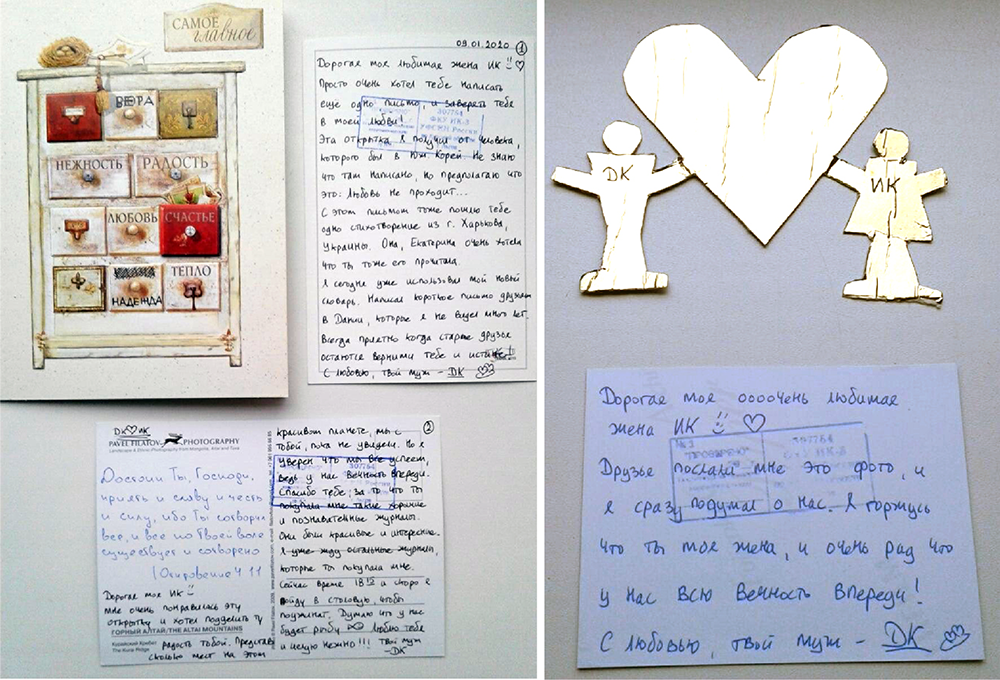 САМОЕ
главное
ВЕРА
НЕЖНОСТЬ
РАДОСТЬ
ЛЮБОВЬ
СЧАСТЬЕ
НАДЕЖДА
ТЕПЛО
09.01.2020 1
Дорогая моя любимая жена ИК
Просто очень хотел тебе написать
ещё одно письмо, и заверять тебя
в моей любви!
307764
ФКУ ИК-3
УФСИН России
Эта открытка я получил от человека,
которого был в Юж Корей. Не знаю
что там написано, но предполагаю что
это: Любовь не проходит...
С этом письмом тоже пошлю тебе
одно стихотворение из г. Харькова,
Украины. Она, Екатерина очень хотела
что ты тоже его прочитала.
Я сегодня уже использовал мой новый
словарь. Написал короткое письмо друзьям
в Дании, которые я не видел много лет.
Всегда приятно когда старые друзья
остаются верними тебе и
С любовью, твой муж - DK
DK ИК
PAVEL FILATOV PHOTOGRAPHY
Landscape & Ethnic Photography from Mongolia, Altai and Tuva
Достоин Ты, Господи,
принять и славу и честь
и силу, ибо Ты сотворил
все, и все по Твоей воле
существует и сотворено
Откровение 4 11
Дорогая моя ИК
Мне очень понравилась эту
открытку и хотел поделить ту
ГОРНЫЙ АЛТАЙ/THE ALTAI MOUNTAINS
радость тобой. Представь
сколько мест на этом
2
красивом планете, мы с
тобой, пока не увидели. Но я
уверен что мы все успеем,
ведь у нас Вечность впереди.
Спасибо тебе, за то что ты
покупала мне такие хорошие
и познавательные журналы.
Они были красивые и интересные.
Я уже жду остальные журналы,
которые ты покупала мне.
Сейчас время 18 и скоро я
пойду в столовую, чтобы
поужинат. Думаю что у нас
будет рыбу Люблю тебя
и целую нежно!!! Твой муж
-DK
DK
ИК
Дорогая моя оооочень любимая
жена ИК
307764
Друзье послали мне это фото, и
я сразу подумал о нас. Я горжусь
что ты моя жена, и очень рад что
у нас всю Вечность впереди!
С любовью, твой муж - DK